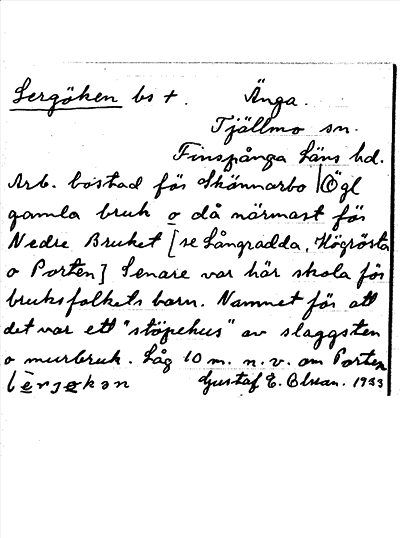 Lergöken bs +. Änga.
Tjällmo sn.
Finspånga Läns hd.
Arb. bostad för Skönnarbo Ögl
gamla bruk o då närmast för
Nedre Bruket [se Långradda, Högrösta
o Porten] Senare var här skola för
bruksfolkets barn. Namnet för att
det var ett "stöpehus" av slaggsten
o murbruk. Låg 10 m. n. v. om Porten
Gustaf E. Olsson. 1933